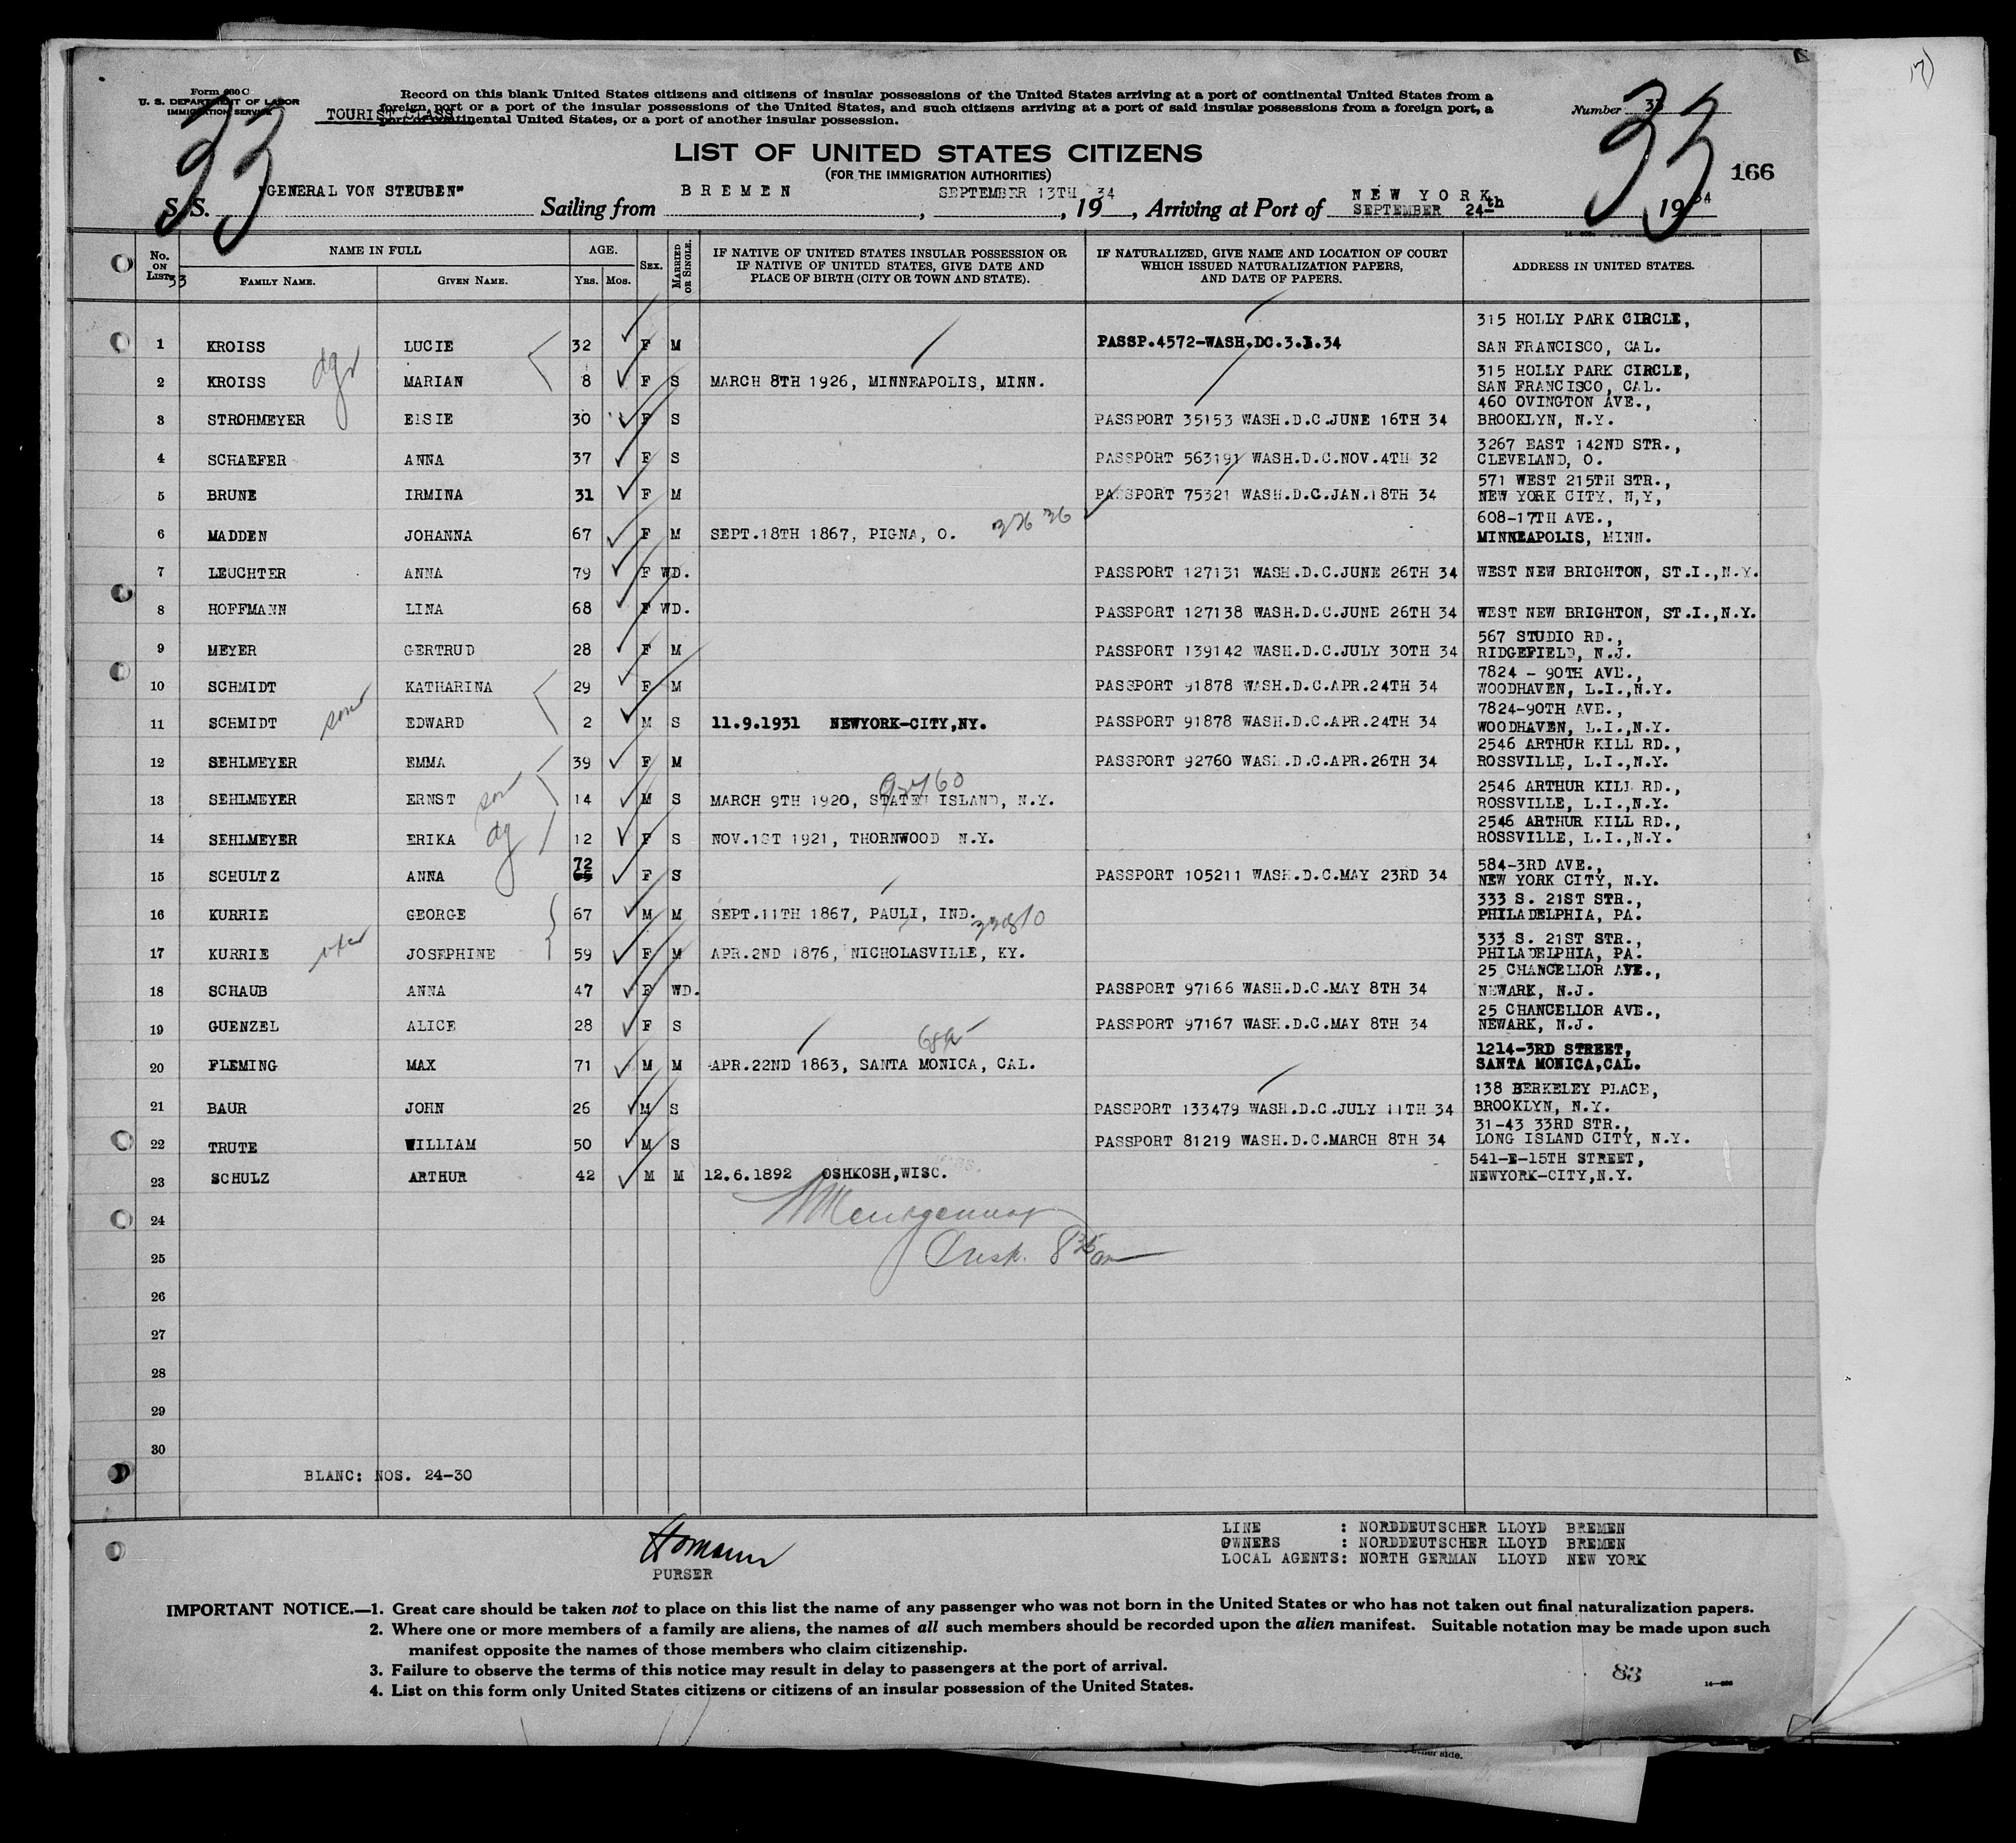 Form 630 C
U. S. DEPARTMENT OF LABOR
IMMIGRATION SERVICE
TOURIST CLASS
Record on this blank United States citizens and citizens of insular possessions of the United States arriving at a port of continental United States from a
foreign port or a port of the insular possessions of the United States, and such citizens arriving at a port of said insular possessions from a foreign port, a
port of continental United States, or a port of another insular possession.
Number 33
33
33
LIST OF UNITED STATES CITIZENS
(FOR THE IMMIGRATION AUTHORITIES)
166
S. S. "GENERAL VON STEUBEN" Sailing from BREMEN, SEPTEMBER 13TH, 19 34, Arriving at Port of NEW YORK SEPTEMBER 24th 19 34
No. ON LIST 33 NAME IN FULL AGE. SEX. MARRIED OR SINGLE. IF NATIVE OF UNITED STATES INSULAR POSSESSION OR IF NATIVE OF UNITED STATES, GIVE DATE AND PLACE OF BIRTH (CITY OR TOWN AND STATE). IF NATURALIZED, GIVE NAME AND LOCATION OF COURT WHICH ISSUED NATURALIZATION PAPERS, AND DATE OF PAPERS. ADDRESS IN UNITED STATES.
FAMILY NAME. GIVEN NAME. YRS. MOS.
1 KROISS LUCIE 32 F M PASSP.4572-WASH.DC.3.3.34 315 HOLLY PARK CIRCLE, SAN FRANCISCO, CAL.
2 KROISS dgr MARIAN 8 F S MARCH 8TH 1926, MINNEAPOLIS, MINN. 315 HOLLY PARK CIRCLE, SAN FRANCISCO, CAL.
3 STROHMEYER ELSIE 30 F S PASSPORT 35153 WASH.D.C.JUNE 16TH 34 460 OVINGTON AVE., BROOKLYN, N.Y.
4 SCHAEFER ANNA 37 F S PASSPORT 563191 WASH.D.C.NOV.4TH 32 3267 EAST 142ND STR., CLEVELAND, O.
5 BRUNE IRMINA 31 F M PASSPORT 75321 WASH.D.C.JAN.18TH 34 571 WEST 215TH STR., NEW YORK CITY, N,Y,
6 MADDEN JOHANNA 67 F M SEPT.18TH 1867, PIGNA, O. 608-17TH AVE., MINNEAPOLIS, MINN.
7 LEUCHTER ANNA 79 F WD. PASSPORT 127131 WASH.D.C.JUNE 26TH 34 WEST NEW BRIGHTON, ST.I.,N.Y.
8 HOFFMANN LINA 68 F WD. PASSPORT 127138 WASH.D.C.JUNE 26TH 34 WEST NEW BRIGHTON, ST.I.,N.Y.
9 MEYER GERTRUD 28 F M PASSPORT 139142 WASH.D.C.JULY 30TH 34 567 STUDIO RD., RIDGEFIELD, N.J.
10 SCHMIDT KATHARINA 29 F M PASSPORT 91878 WASH.D.C.APR.24TH 34 7824 - 90TH AVE., WOODHAVEN, L.I.,N.Y.
11 SCHMIDT son EDWARD 2 M S 11.9.1931 NEWYORK-CITY,NY. PASSPORT 91878 WASH.D.C.APR.24TH 34 7824-90TH AVE., WOODHAVEN, L.I.,N.Y.
12 SEHLMEYER EMMA 39 F M PASSPORT 92760 WASH.D.C.APR.26TH 34 2546 ARTHUR KILL RD., ROSSVILLE, L.I.,N.Y.
13 SEHLMEYER ERNST son 14 M S MARCH 9TH 1920, STATEN ISLAND, N.Y. 2546 ARTHUR KILL RD., ROSSVILLE, L.I.,N.Y.
14 SEHLMEYER ERIKA dg 12 F S NOV.1ST 1921, THORNWOOD N.Y. 2546 ARTHUR KILL RD., ROSSVILLE, L.I.,N.Y.
15 SCHULTZ ANNA 72 F S PASSPORT 105211 WASH.D.C.MAY 23RD 34 584-3RD AVE., NEW YORK CITY, N.Y.
16 KURRIE GEORGE 67 M M SEPT.11TH 1867, PAULI, IND. 333 S. 21ST STR., PHILADELPHIA, PA.
17 KURRIE uxor JOSEPHINE 59 F M APR.2ND 1876, NICHOLASVILLE, KY. 333 S. 21ST STR., PHILADELPHIA, PA.
18 SCHAUB ANNA 47 F WD. PASSPORT 97166 WASH.D.C.MAY 8TH 34 25 CHANCELLOR AVE., NEWARK, N.J.
19 GUENZEL ALICE 28 F S PASSPORT 97167 WASH.D.C.MAY 8TH 34 25 CHANCELLOR AVE., NEWARK, N.J.
20 FLEMING MAX 71 M M APR.22ND 1863, SANTA MONICA, CAL. 1214-3RD STREET, SANTA MONICA,CAL.
21 BAUR JOHN 26 M S PASSPORT 133479 WASH.D.C.JULY 11TH 34 138 BERKELEY PLACE, BROOKLYN, N.Y.
22 TRUTE WILLIAM 50 M S PASSPORT 81219 WASH.D.C.MARCH 8TH 34 31-43 33RD STR., LONG ISLAND CITY, N.Y.
23 SCHULZ ARTHUR 42 M M 12.6.1892 OSHKOSH,WISC. 541-E-15TH STREET, NEWYORK-CITY,N.Y.
24
25
26
27
28
29
30
BLANC: NOS. 24-30
Homann
PURSER
LINE : NORDDEUTSCHER LLOYD BREMEN
OWNERS : NORDDEUTSCHER LLOYD BREMEN
LOCAL AGENTS: NORTH GERMAN LLOYD NEW YORK
IMPORTANT NOTICE.—1. Great care should be taken not to place on this list the name of any passenger who was not born in the United States or who has not taken out final naturalization papers.
2. Where one or more members of a family are aliens, the names of all such members should be recorded upon the alien manifest. Suitable notation may be made upon such
manifest opposite the names of those members who claim citizenship.
3. Failure to observe the terms of this notice may result in delay to passengers at the port of arrival.
4. List on this form only United States citizens or citizens of an insular possession of the United States.
83
other side.